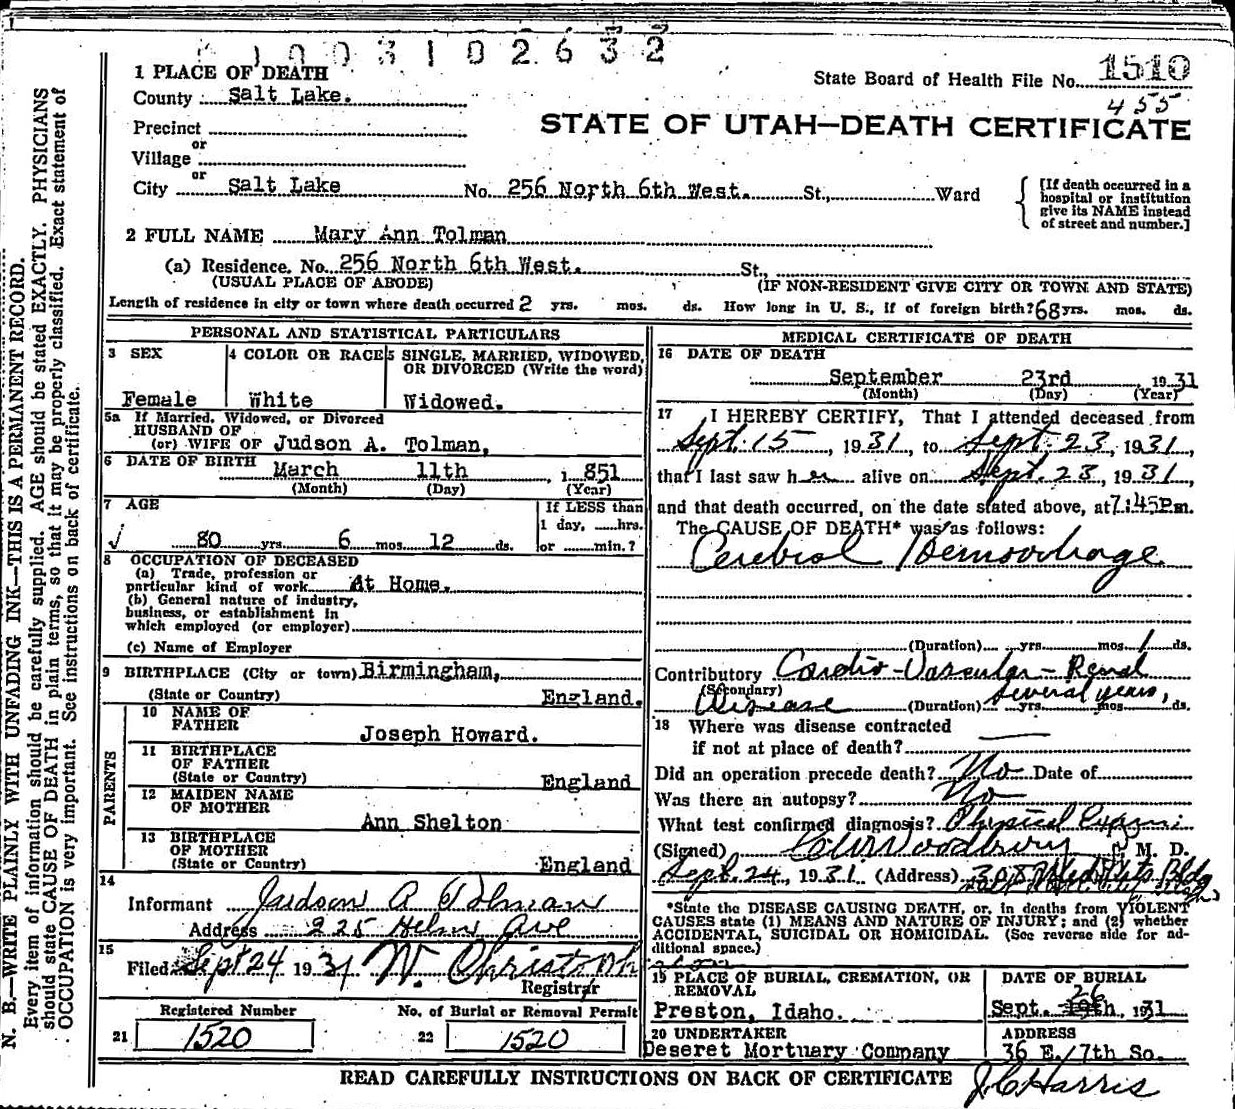 1003102632
1 PLACE OF DEATH
State Board of Health File No. 1510
County Salt Lake.
455
STATE OF UTAH—DEATH CERTIFICATE
Precinct
or
Village
or
City Salt Lake No. 256 North 6th West. St., Ward
[If death occurred in a hospital or institution give its NAME instead of street and number.]
2 FULL NAME Mary Ann Tolman
(a) Residence. No. 256 North 6th West. St.,
(USUAL PLACE OF ABODE) (IF NON-RESIDENT GIVE CITY OR TOWN AND STATE)
Length of residence in city or town where death occurred 2 yrs. mos. ds. How long in U. S., if of foreign birth? 68 yrs. mos. ds.
PERSONAL AND STATISTICAL PARTICULARS
3 SEX
Female
4 COLOR OR RACE
White
5 SINGLE, MARRIED, WIDOWED, OR DIVORCED (Write the word)
Widowed.
5a If Married, Widowed, or Divorced
HUSBAND OF
(or) WIFE OF Judson A. Tolman,
6 DATE OF BIRTH March 11th, 1851
(Month) (Day) (Year)
7 AGE
If LESS than
1 day, hrs.
or min.?
80 yrs. 6 mos. 12 ds.
8 OCCUPATION OF DECEASED
(a) Trade, profession or
particular kind of work At Home.
(b) General nature of industry,
business, or establishment in
which employed (or employer)
(c) Name of Employer
9 BIRTHPLACE (City or town) Birmingham,
(State or Country) England.
PARENTS
10 NAME OF
FATHER Joseph Howard.
11 BIRTHPLACE
OF FATHER
(State or Country) England
12 MAIDEN NAME
OF MOTHER Ann Shelton
13 BIRTHPLACE
OF MOTHER
(State or Country) England
14
Informant Judson A Tolman
Address 225 Helm Ave
15
Filed Sept 24 1931 W.
Registrar
Registered Number No. of Burial or Removal Permit
21 1520 22 1520
MEDICAL CERTIFICATE OF DEATH
16 DATE OF DEATH
September 23rd, 1931
(Month) (Day) (Year)
17 I HEREBY CERTIFY, That I attended deceased from
Sept. 15, 1931, to Sept. 23, 1931,
that I last saw her alive on Sept. 23, 1931,
and that death occurred, on the date stated above, at 7:45P.m.
The CAUSE OF DEATH* was as follows:
Cerebral Hemorrhage
(Duration) yrs. mos. 1 ds.
Contributory Cardio-Vascular-Renal
(Secondary) Disease (Duration) several years, yrs. mos. ds.
18 Where was disease contracted
if not at place of death?
Did an operation precede death? No Date of
Was there an autopsy? No
What test confirmed diagnosis? Physical Exami
(Signed) Woodbury M. D.
Sept. 24, 1931 (Address) 305 Bldg
*State the DISEASE CAUSING DEATH, or, in deaths from VIOLENT
CAUSES state (1) MEANS AND NATURE OF INJURY; and (2) whether
ACCIDENTAL, SUICIDAL OR HOMICIDAL. (See reverse side for ad-
ditional space.)
19 PLACE OF BURIAL, CREMATION, OR
REMOVAL
Preston, Idaho.
DATE OF BURIAL
26
Sept. 19th, 1931
20 UNDERTAKER
Deseret Mortuary Company
ADDRESS
36 E. 7th So.
READ CAREFULLY INSTRUCTIONS ON BACK OF CERTIFICATE
J.C. Harris
N. B.—WRITE PLAINLY WITH UNFADING INK—THIS IS A PERMANENT RECORD.
Every item of information should be carefully supplied. AGE should be stated EXACTLY. PHYSICIANS
should state CAUSE OF DEATH in plain terms, so that it may be properly classified. Exact statement of
OCCUPATION is very important. See instructions on back of certificate.